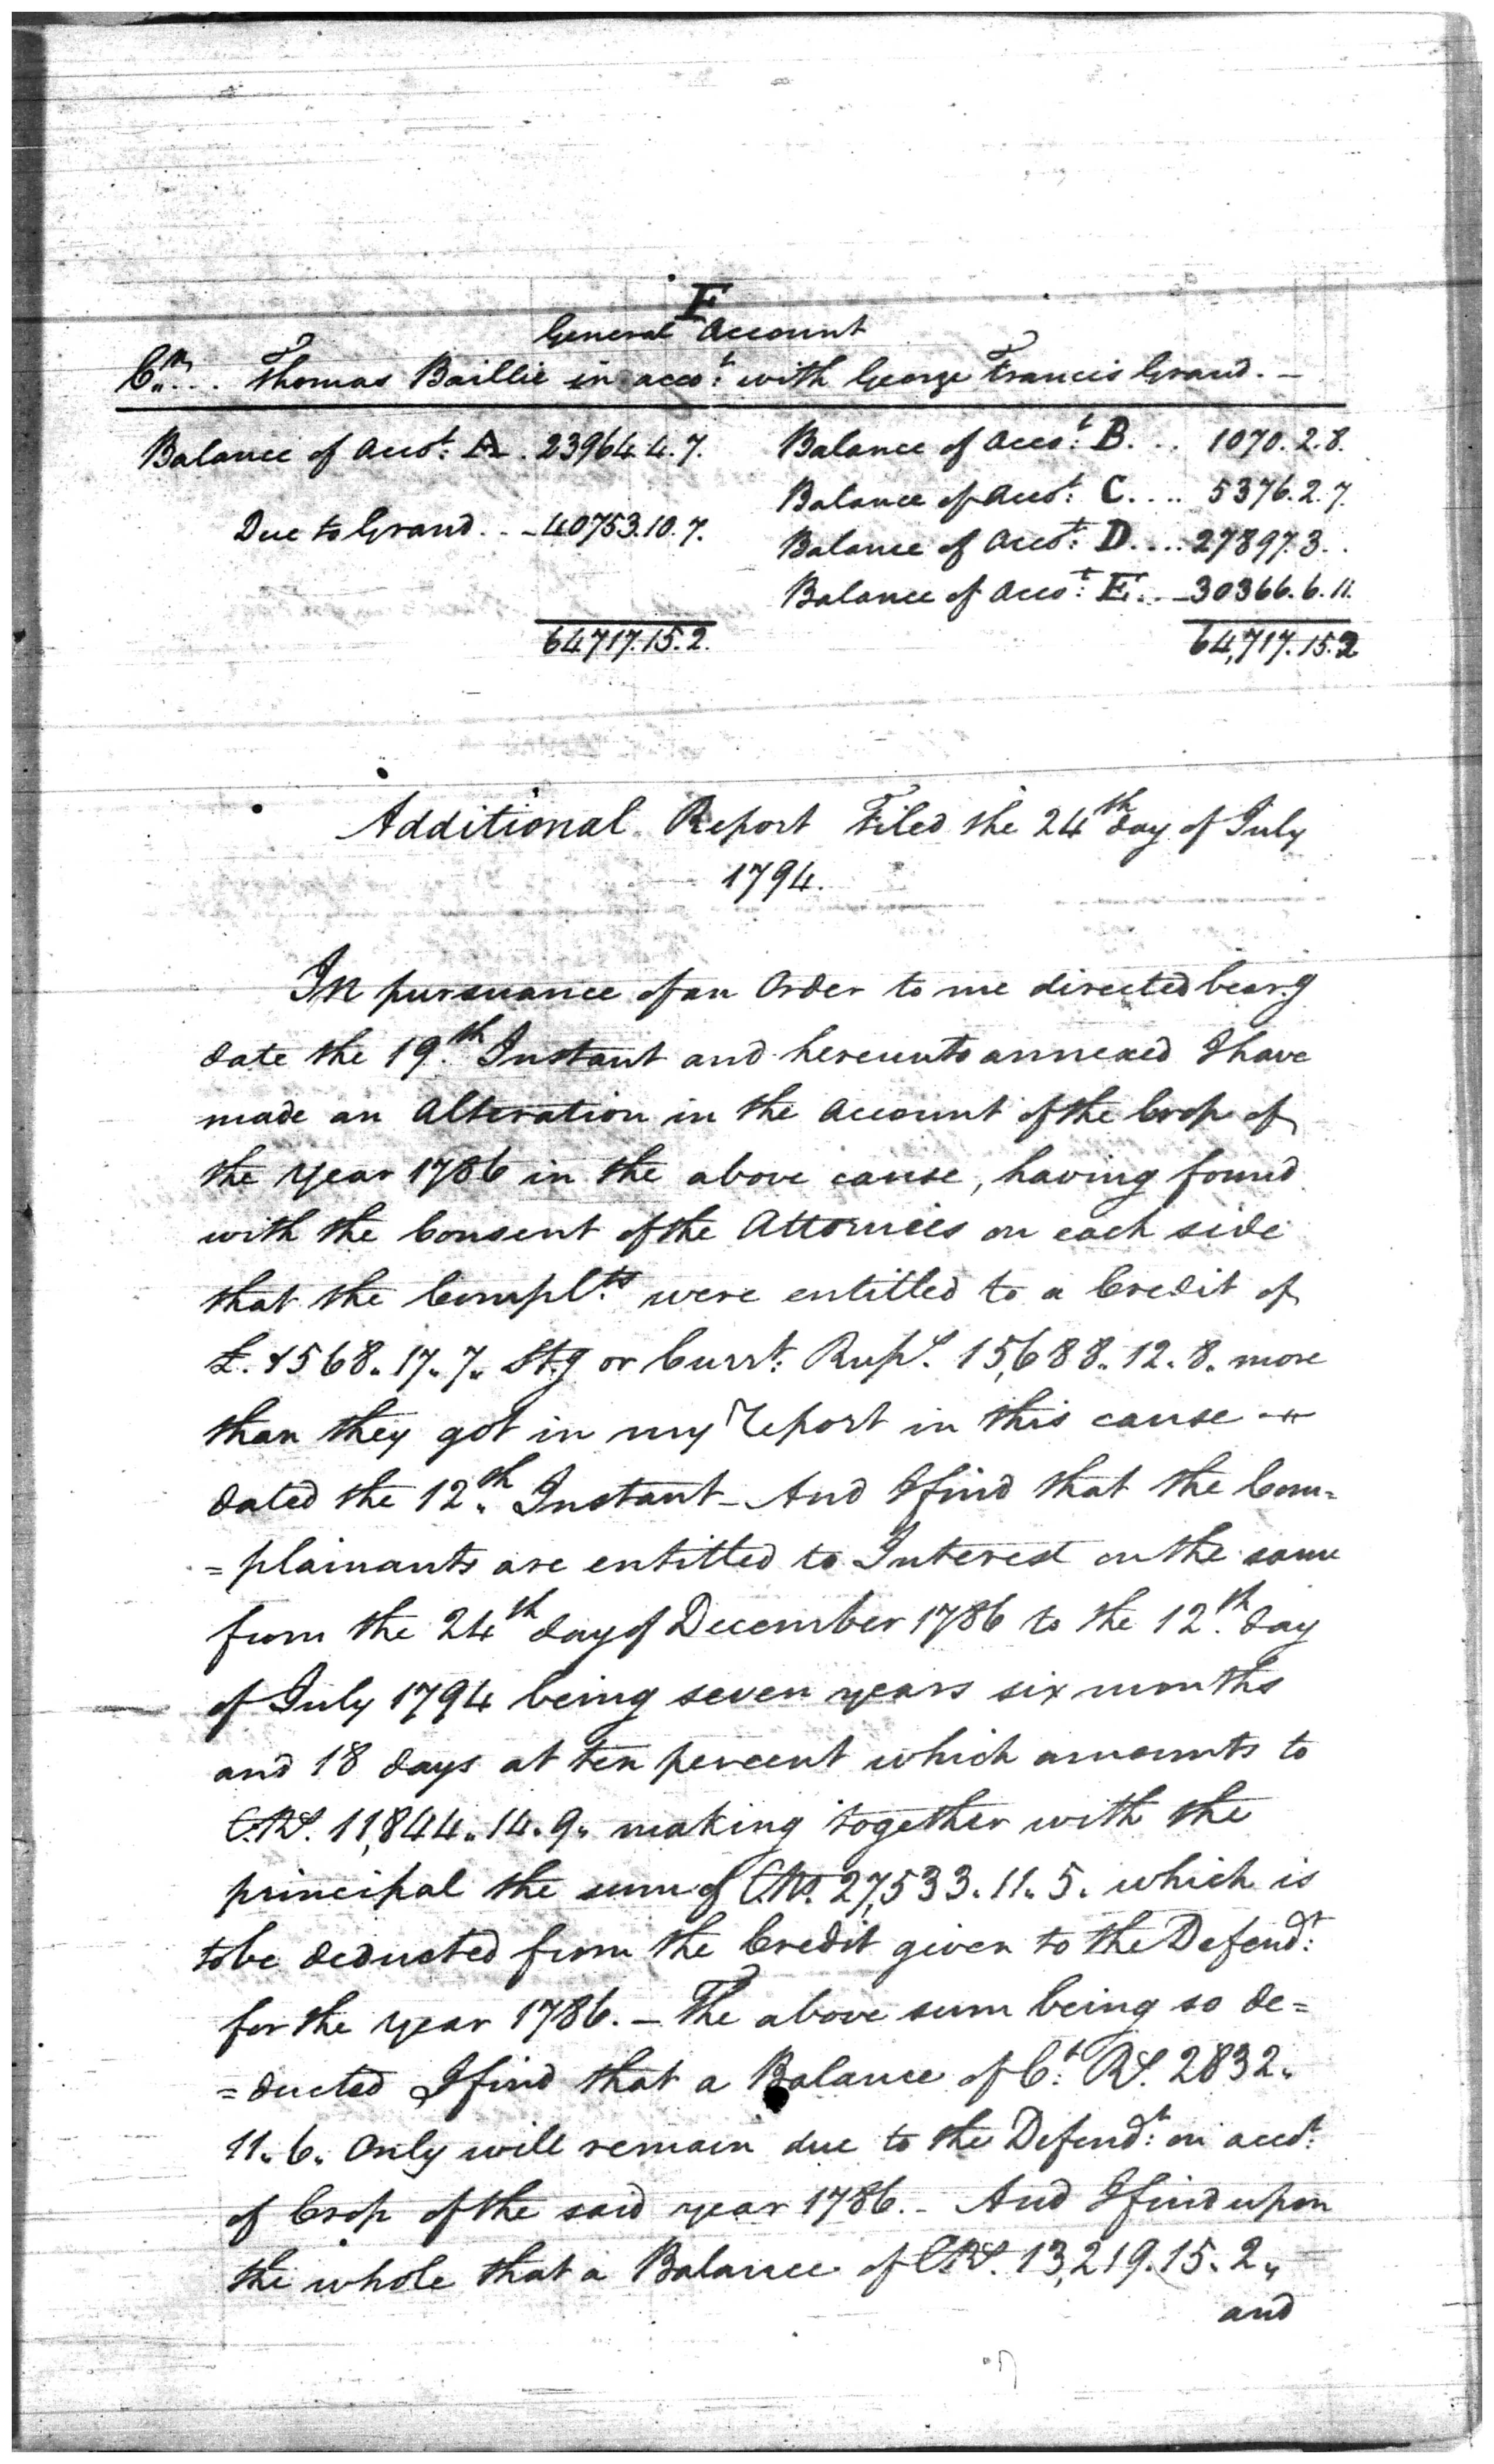 F
General Account
Cr.... Thomas Baillie in acco:t with George Francis Grand. —
Balance of Acco:t A. 23964.4.7. Balance of Acco:t B... 1070.2.8.
Balance of Acco:t C.... 5376.2.7.
Due to Grand... 40753.10.7. Balance of Acco:t D.... 27897.3..
Balance of Acco:t E... 30366.6.11.
64717.15.2. 64,717.15.2
Additional Report Filed the 24th day of July
1794.
In pursuance of an Order to me directed bear.g
date the 19th Instant and hereunto annexed I have
made an Alteration in the Account of the Crop of
the Year 1786 in the above cause, having found
with the Consent of the Attornies on each side
that the Compl.ts were entitled to a Credit of
£.1568.17.7. St.g or Curr:t Rup.s 15,688.12.8. more
than they got in my Report in this cause
dated the 12th Instant – And I find that the Com=
=plainants are entitled to Interest on the same
from the 24th day of December 1786 to the 12th day
of July 1794 being seven years six months
and 18 days at ten percent which amounts to
C.Rs. 11,844.14.9. making together with the
principal the sum of C.Rs. 27,533.11.5. which is
to be deducted from the Credit given to the Defend:t
for the Year 1786. – The above sum being so de=
=ducted I find that a Balance of C:t Rs. 2832.
11.6. Only will remain due to the Defend:t on acco:t
of Crop of the said year 1786. – And I find upon
the whole that a Balance of C.Rs. 13,219.15.2.
and